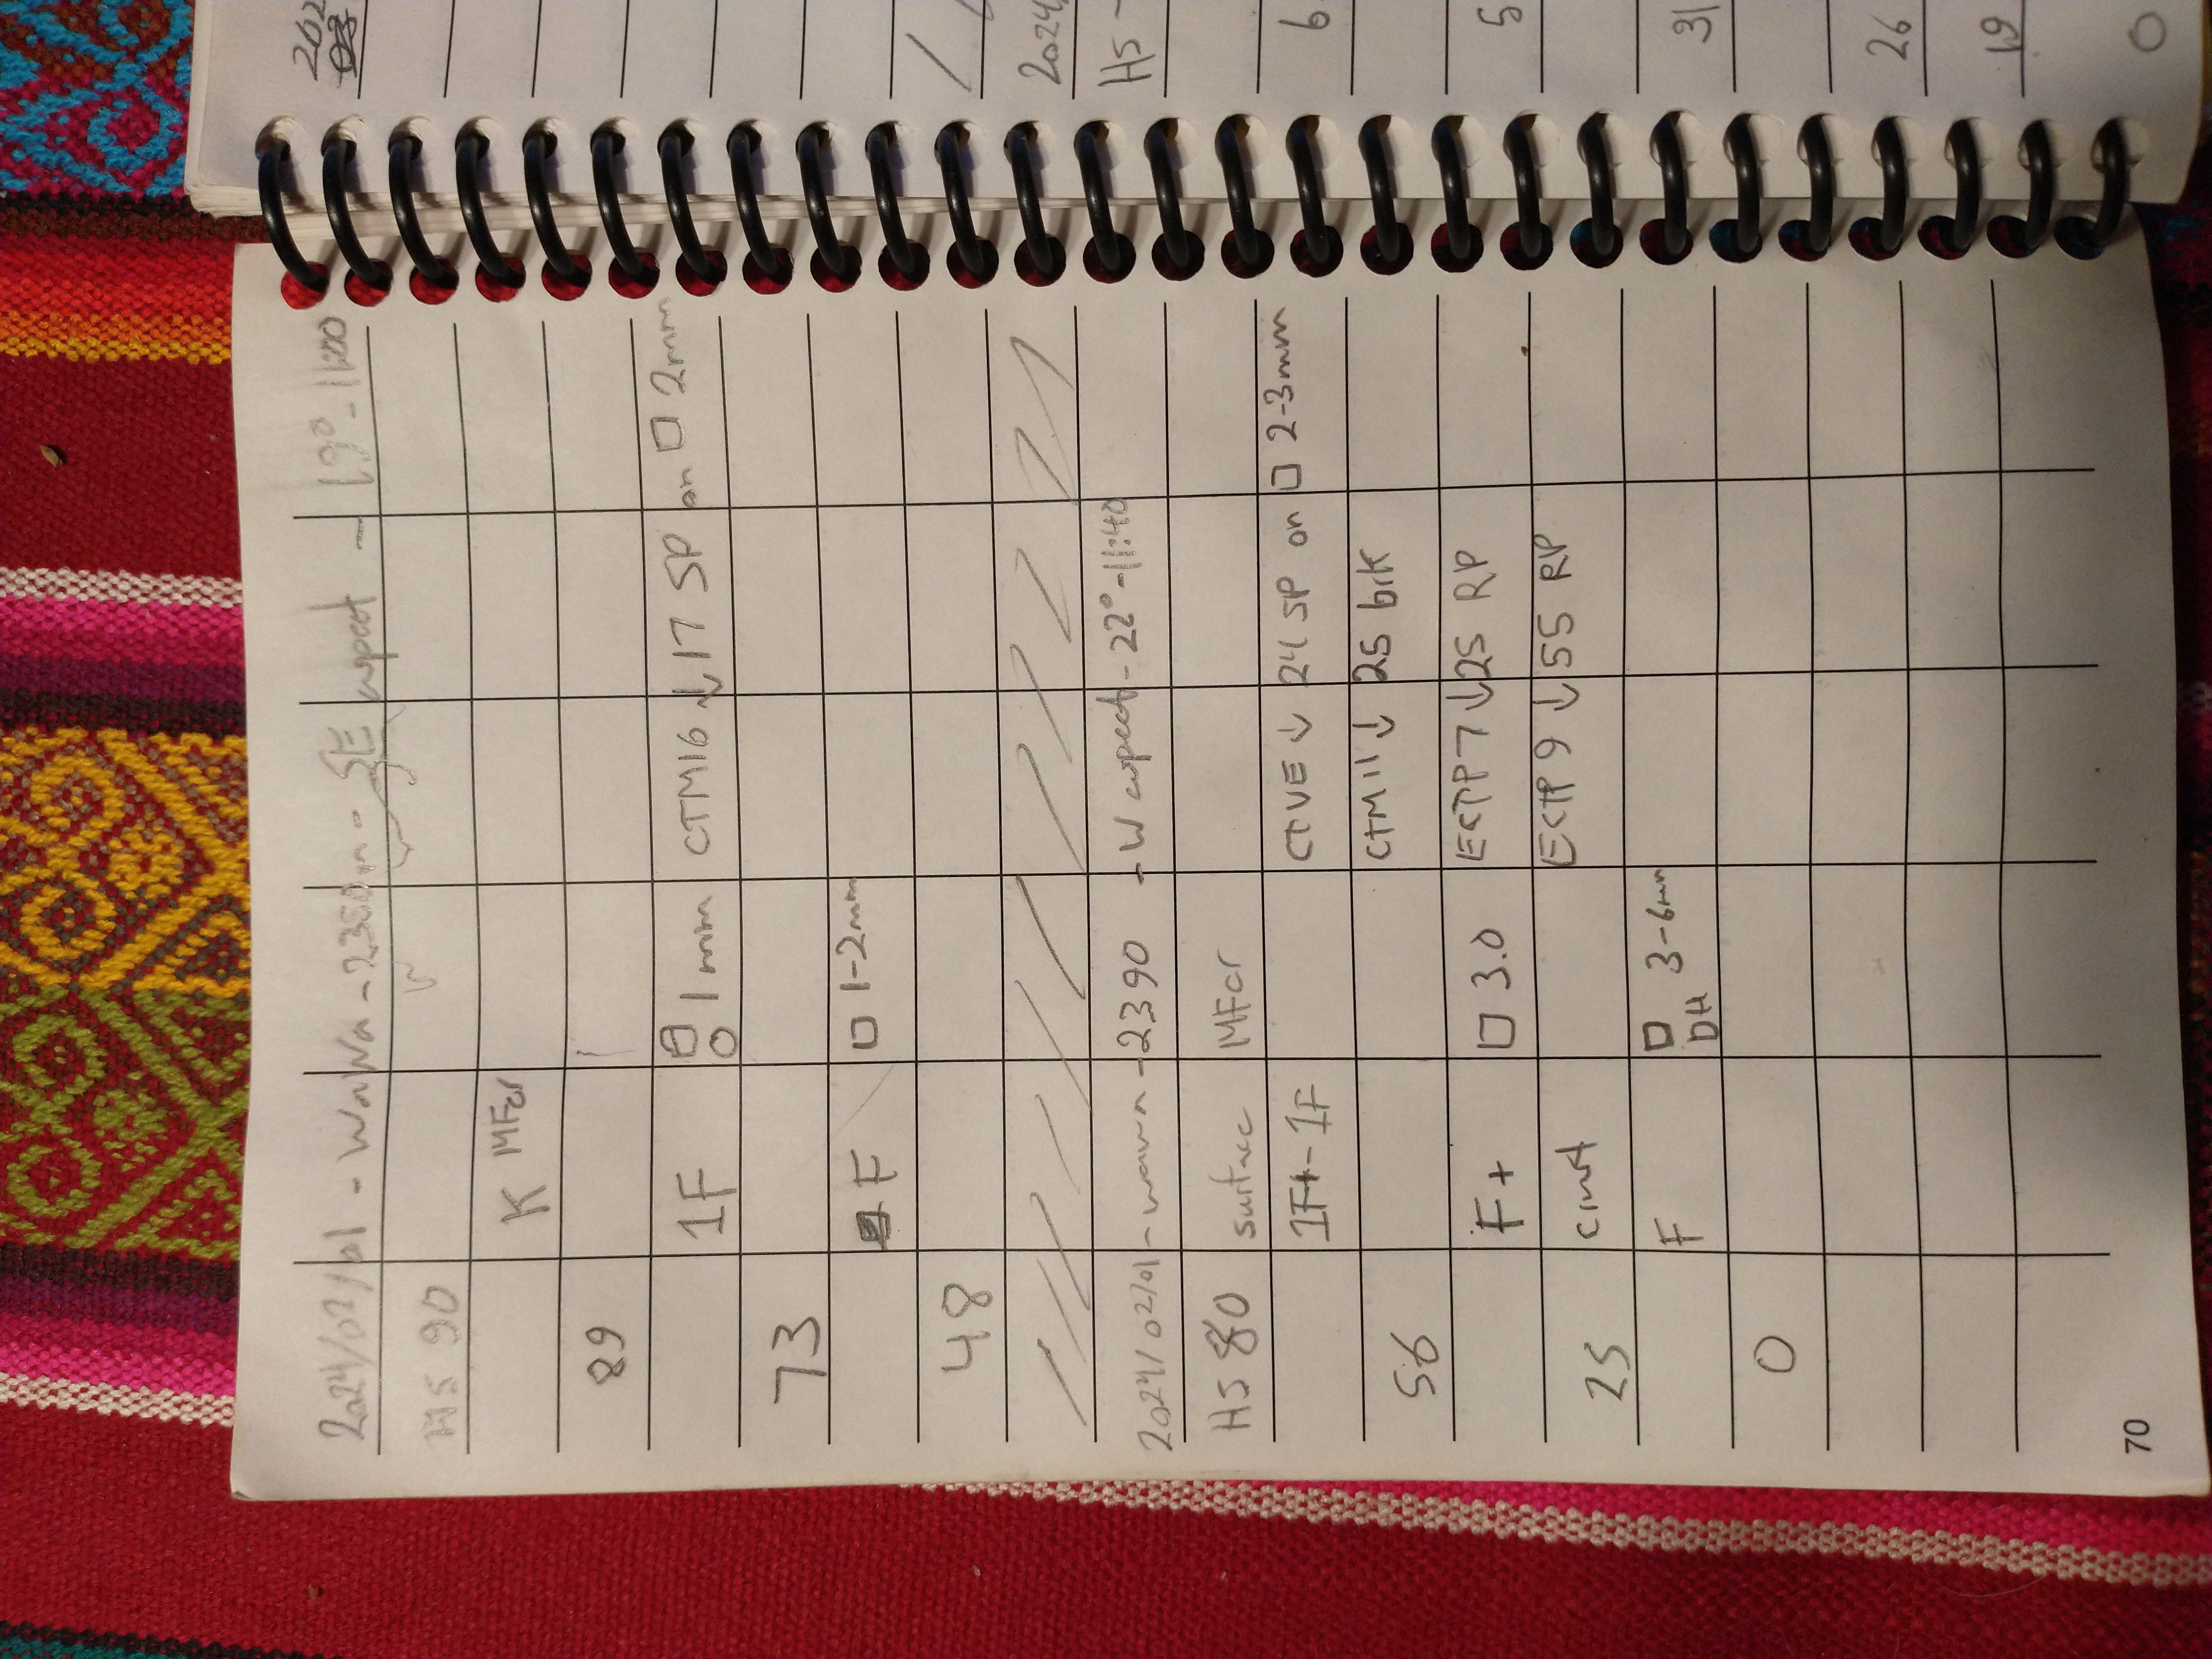 2024/02/01 - Wawa - 2350m - SE aspect - 19° - 11:00
HS 90
K MFcr
89
1F □ ○ 1mm CTM16 ↓ 17 SP on □ 2mm
73
F □ 1-2mm
48
2024/02/01 - wawa - 2390 - W aspect - 22° - 11:40
HS 80 surface MFcr
1F+ - 1F CTVE ↓ 24 SP on □ 2-3mm
56 CTM11 ↓ 25 brK
F+ □ 3.0 ECTP7 ↓ 25 RP
25 crust ECTP9 ↓ 55 RP
F □ 3-6mm
DH
0
70
202
2024/
HS -
6
5
31
26
19
0